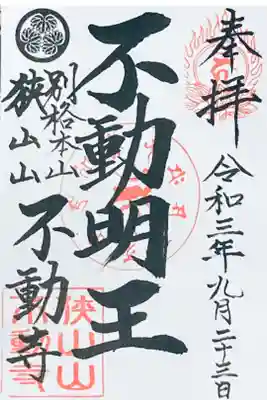 奉拝
令和三年九月二十三日
不動明王
別格本山
狭山山
不動寺
狭山山
不動寺